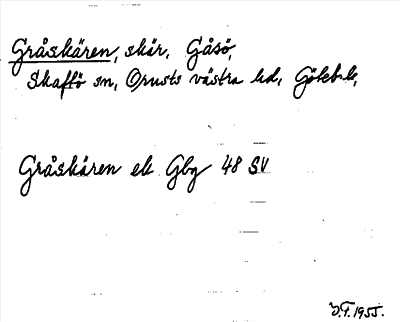 Gråskären, skär, Gåsö,
Skaftö sn, Orusts västra hd, Göteb.l.,
Gråskären ek Gbg 48 SV
J.F. 1955.